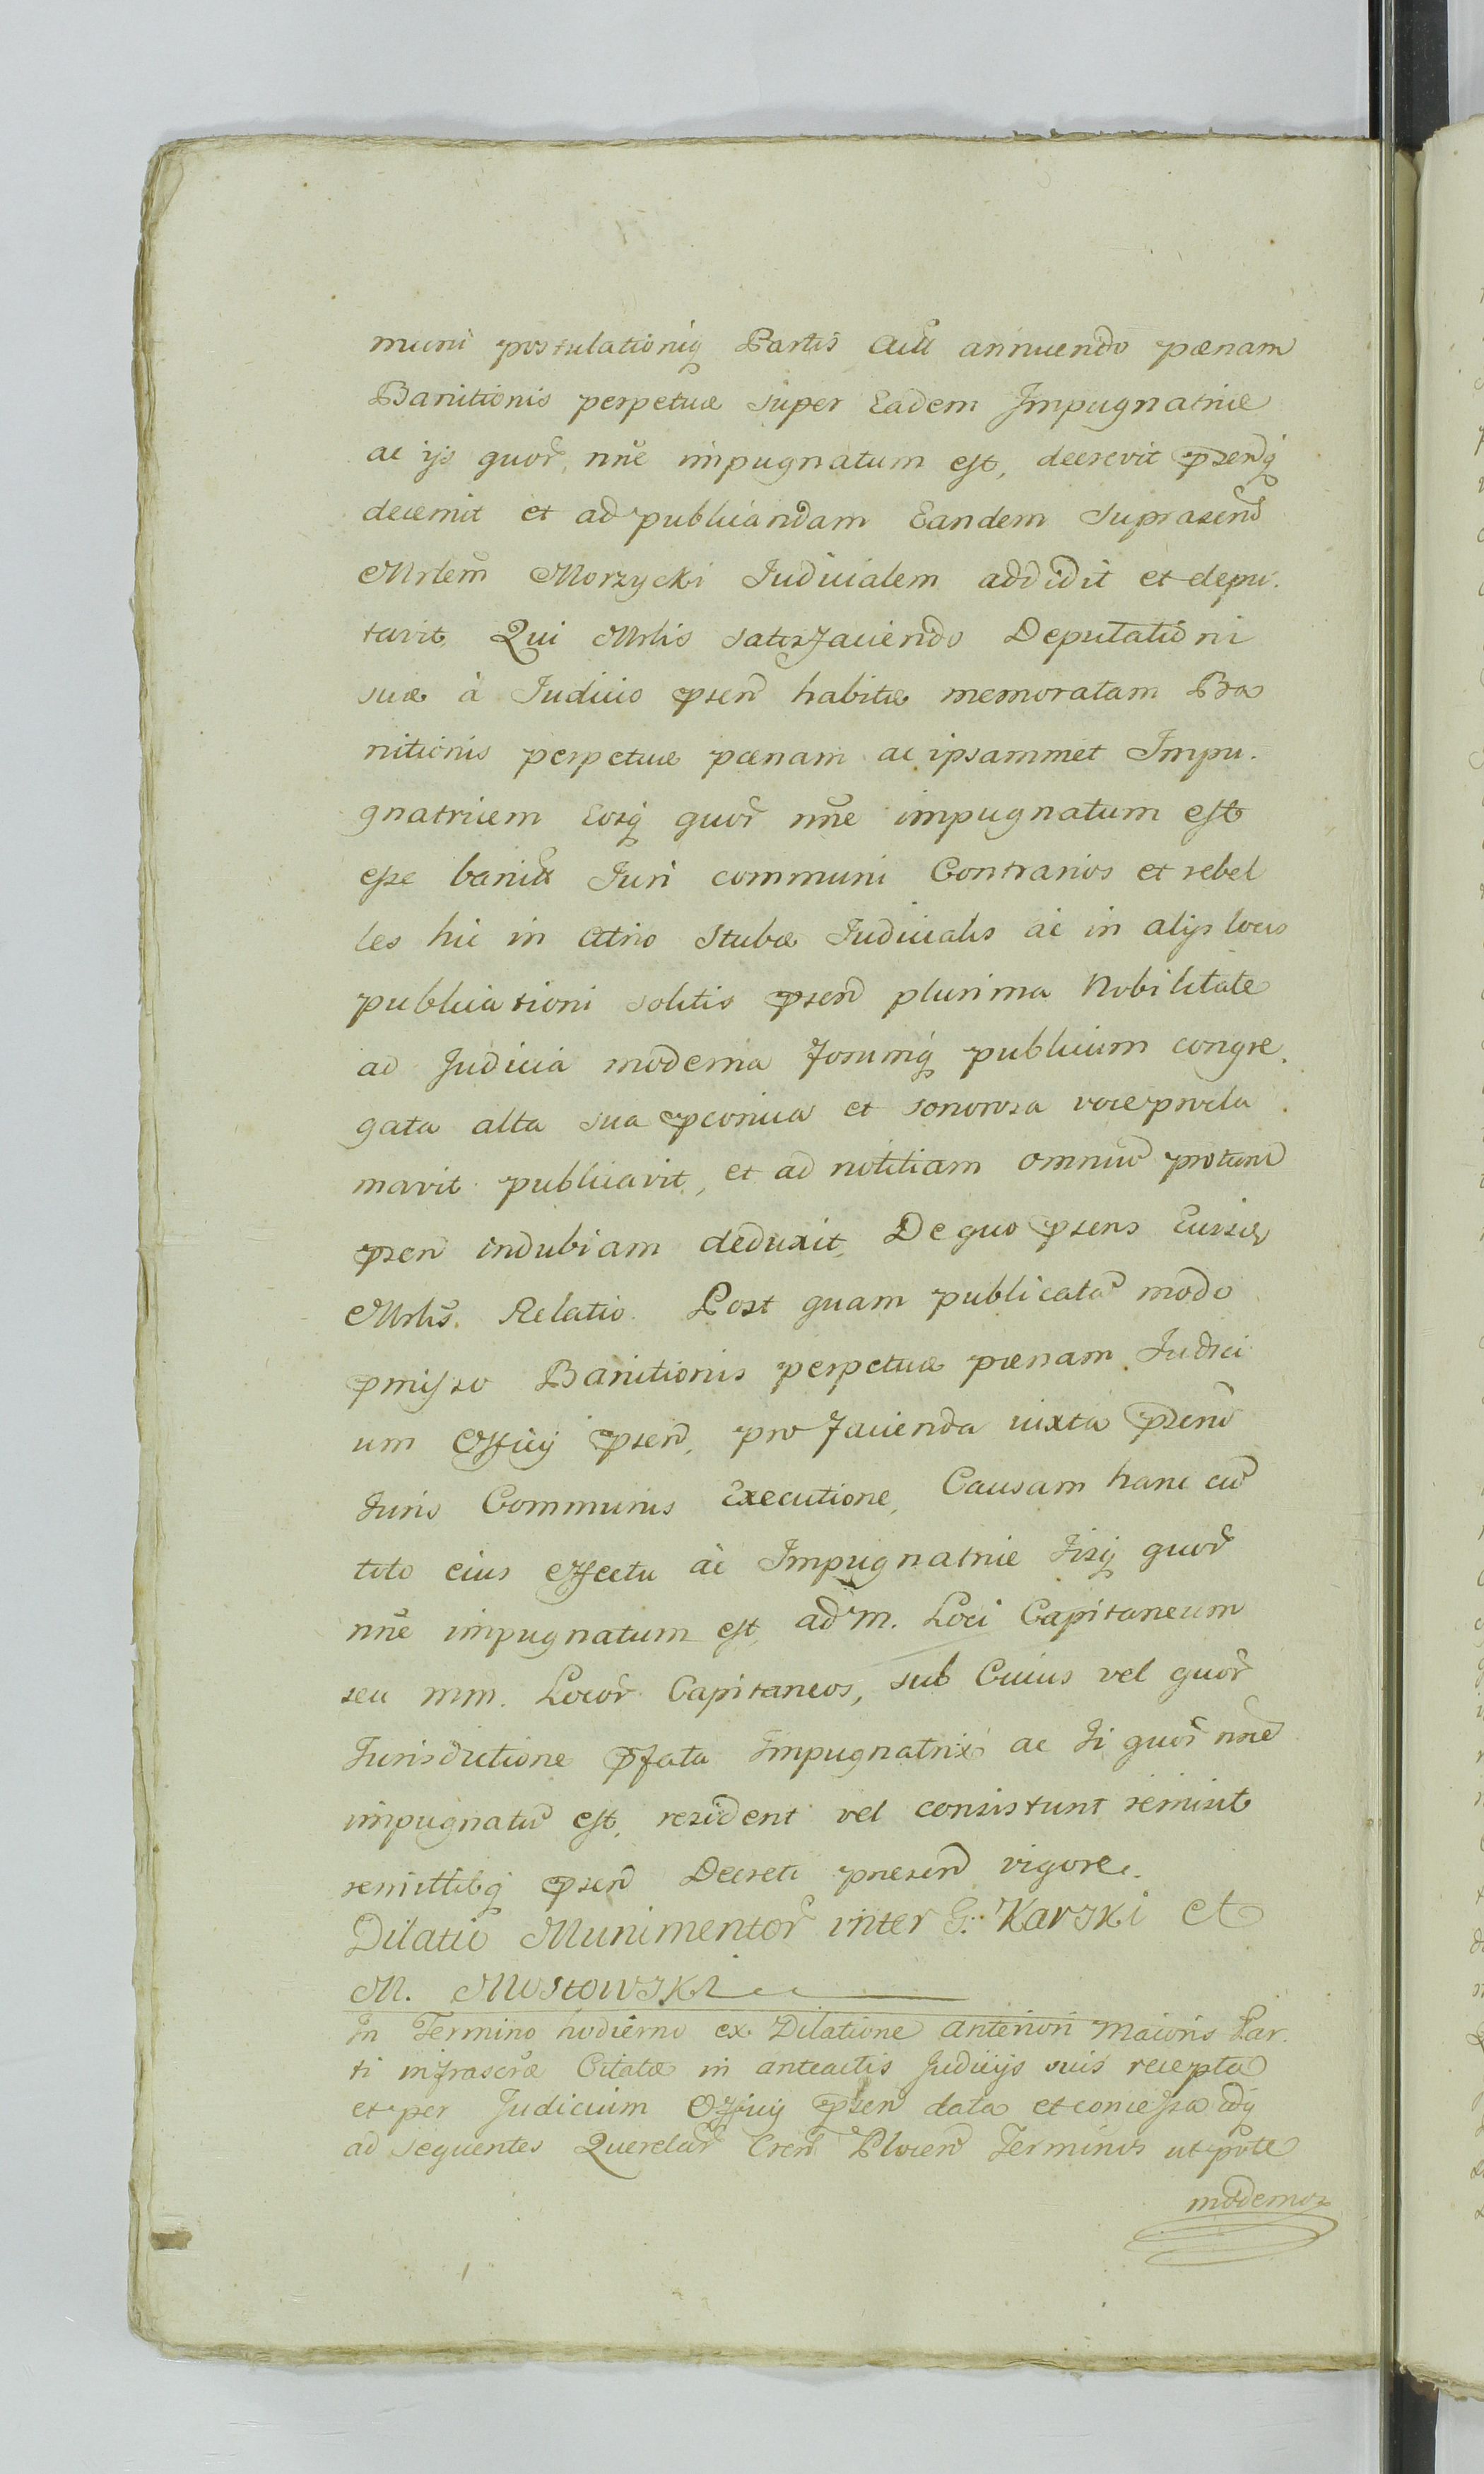 muni postulationiq Partis Actt annuendo pænam
Banitionis perpetuæ super Eadem Impugnatrice
ac ijs quor, nne impugnatum est, decrevit pstenq
decernit et ad publicandam Eandem suprascrip
Mrlem Morzycki Judicialem addidit et depu.
tavit, Qui Mrlis satisfaciendo Deputationi
suæ à Judicio psen habitæ memoratam Ba
nitionis perpetuæ pænam ac ipsammet Impu.
gnatricem Eosq quor nne impugnatum est
esse banitt Juri communi Contrarios et rebel
les hic in Atrio Stubæ Judicialis ac in alijs locis
publicationi solitis psen plurima Nobilitate
ad Judicia moderna forumq publicum congre.
gata alta sua pconica et sonorosa voce procla
mavit publicavit, et ad notitiam omniu protunc
psen indubiam deduxit, De quo psens Eiusd
Mrlis Relatio. Post quam publicata modo
pmisso Banitionis perpetuæ pænam Judici
um Officij psen, pro facienda iuxta psens
Juris Communis Executione, Causam hanc cu
toto eius effectu ac Impugnatrice Jisq quor
nne impugnatum est, ad M. Loci Capitaneum
seu MM. Locor Capitaneos, sub Cuius vel quor
Jurisdictione pfata Impugnatrix ac Ji quor nne
impugnatu est, resident vel consistunt remisit
remittitq psen Decreti præsen vigore.
Dilatio Munimentor inter G. Karski et
M. Mostowski
In Termino hodierno ex Dilatione anteriori Maioris Par.
ti infrascræ Citatæ in anteactis Judicijs suis recepta
et per Judicium Officij psen data et concessa idq
ad sequentes Querelar Cren Plocen Terminos utpote
modernos